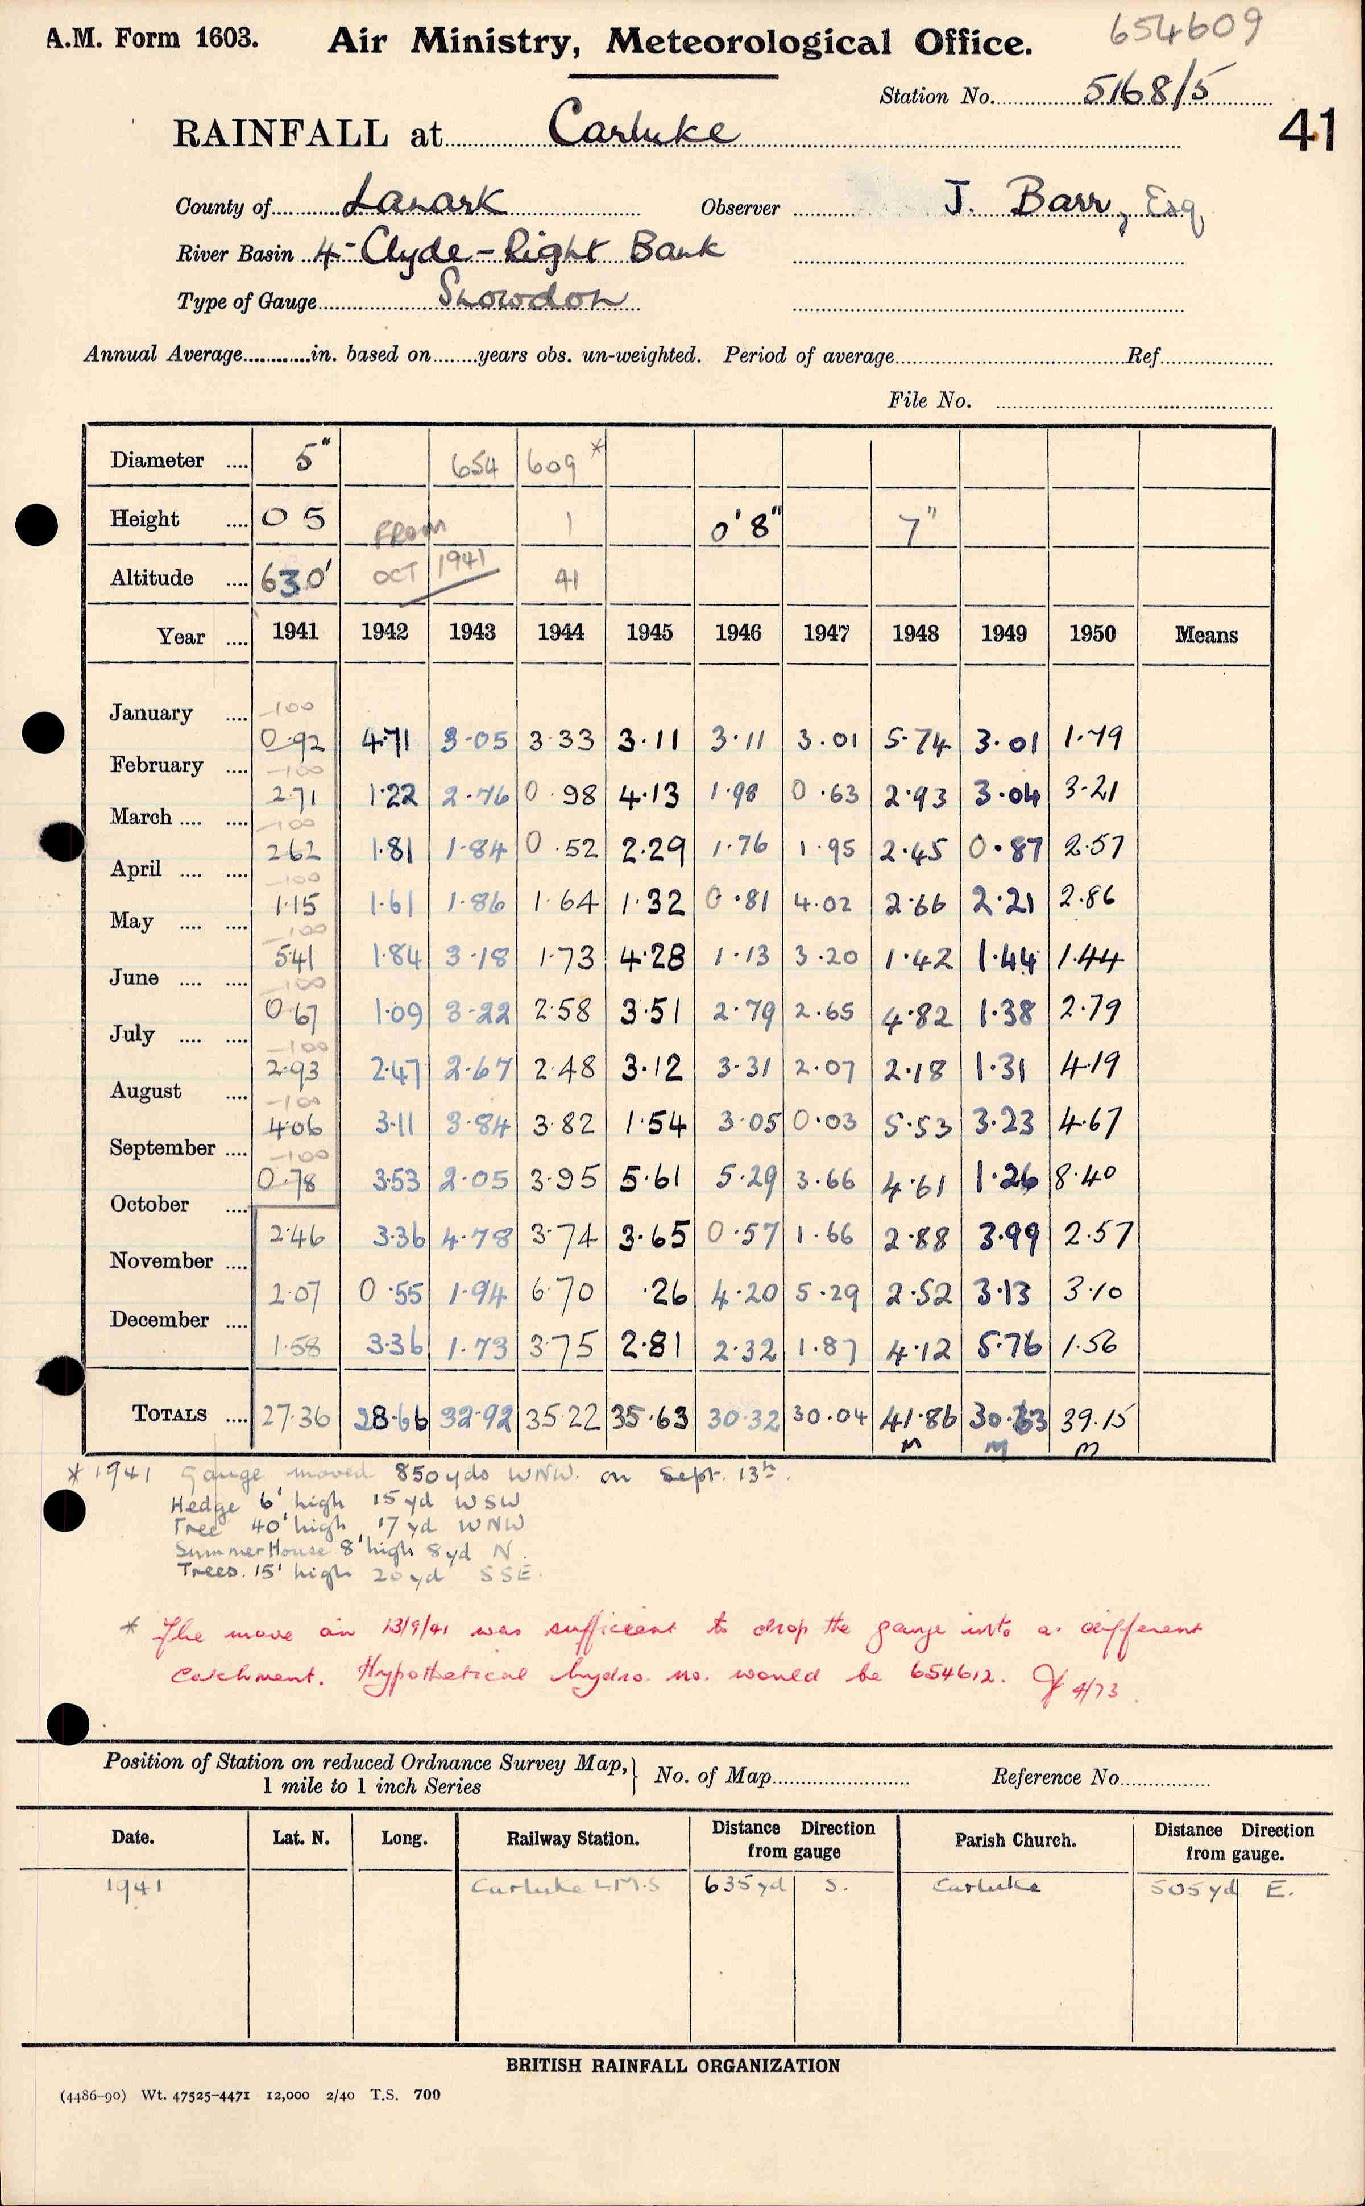 A.M. Form 1603. Air Ministry, Meteorological Office. 654609
Station No. 5168/5
RAINFALL at Carluke 41
County of Lanark Observer J. Barr, Esq
River Basin 4 - Clyde - Right Bank
Type of Gauge Snowdon
Annual Average in. based on years obs. un-weighted. Period of average Ref
File No.
Diameter .... 5" 654 609 *
Height .... 0 5 FROM 1 0' 8" 7"
Altitude .... 630' OCT 1941 41
Year .... 1941 1942 1943 1944 1945 1946 1947 1948 1949 1950 Means
January .... -100
0.92 4.71 3.05 3.33 3.11 3.11 3.01 5.74 3.01 1.79
February .... -100
2.71 1.22 2.76 0.98 4.13 1.98 0.63 2.93 3.04 3.21
March .... .... -100
2.62 1.81 1.84 0.52 2.29 1.76 1.95 2.45 0.87 2.57
April .... .... -100
1.15 1.61 1.86 1.64 1.32 0.81 4.02 2.66 2.21 2.86
May .... .... -100
5.41 1.84 3.18 1.73 4.28 1.13 3.20 1.42 1.44 1.44
June .... .... -100
0.67 1.09 3.22 2.58 3.51 2.79 2.65 4.82 1.38 2.79
July .... .... -100
2.93 2.47 2.67 2.48 3.12 3.31 2.07 2.18 1.31 4.19
August .... -100
4.06 3.11 3.84 3.82 1.54 3.05 0.03 5.53 3.23 4.67
September .... -100
0.78 3.53 2.05 3.95 5.61 5.29 3.66 4.61 1.26 8.40
October ....
2.46 3.36 4.78 3.74 3.65 0.57 1.66 2.88 3.99 2.57
November ....
2.07 0.55 1.94 6.70 .26 4.20 5.29 2.52 3.13 3.10
December ....
1.58 3.36 1.73 3.75 2.81 2.32 1.87 4.12 5.76 1.56
TOTALS .... 27.36 28.66 32.92 35.22 35.63 30.32 30.04 41.86 30.63 39.15
M M M
* 1941 Gauge moved 850 yds WNW. on Sept. 13th.
Hedge 6' high 15 yd WSW
Tree 40' high 17 yd WNW
Summer House 8' high 8 yd N.
Trees. 15' high 20 yd SSE.
* The move on 13/9/41 was sufficient to drop the gauge into a different
catchment. Hypothetical hydro. no. would be 654612. 4/73
Position of Station on reduced Ordnance Survey Map, No. of Map Reference No
1 mile to 1 inch Series
Date. Lat. N. Long. Railway Station. Distance Direction from gauge Parish Church. Distance Direction from gauge.
1941 Carluke L.M.S 635 yd S. Carluke 505 yd E.
BRITISH RAINFALL ORGANIZATION
(4486-90) Wt. 47525-4471 12,000 2/40 T.S. 700